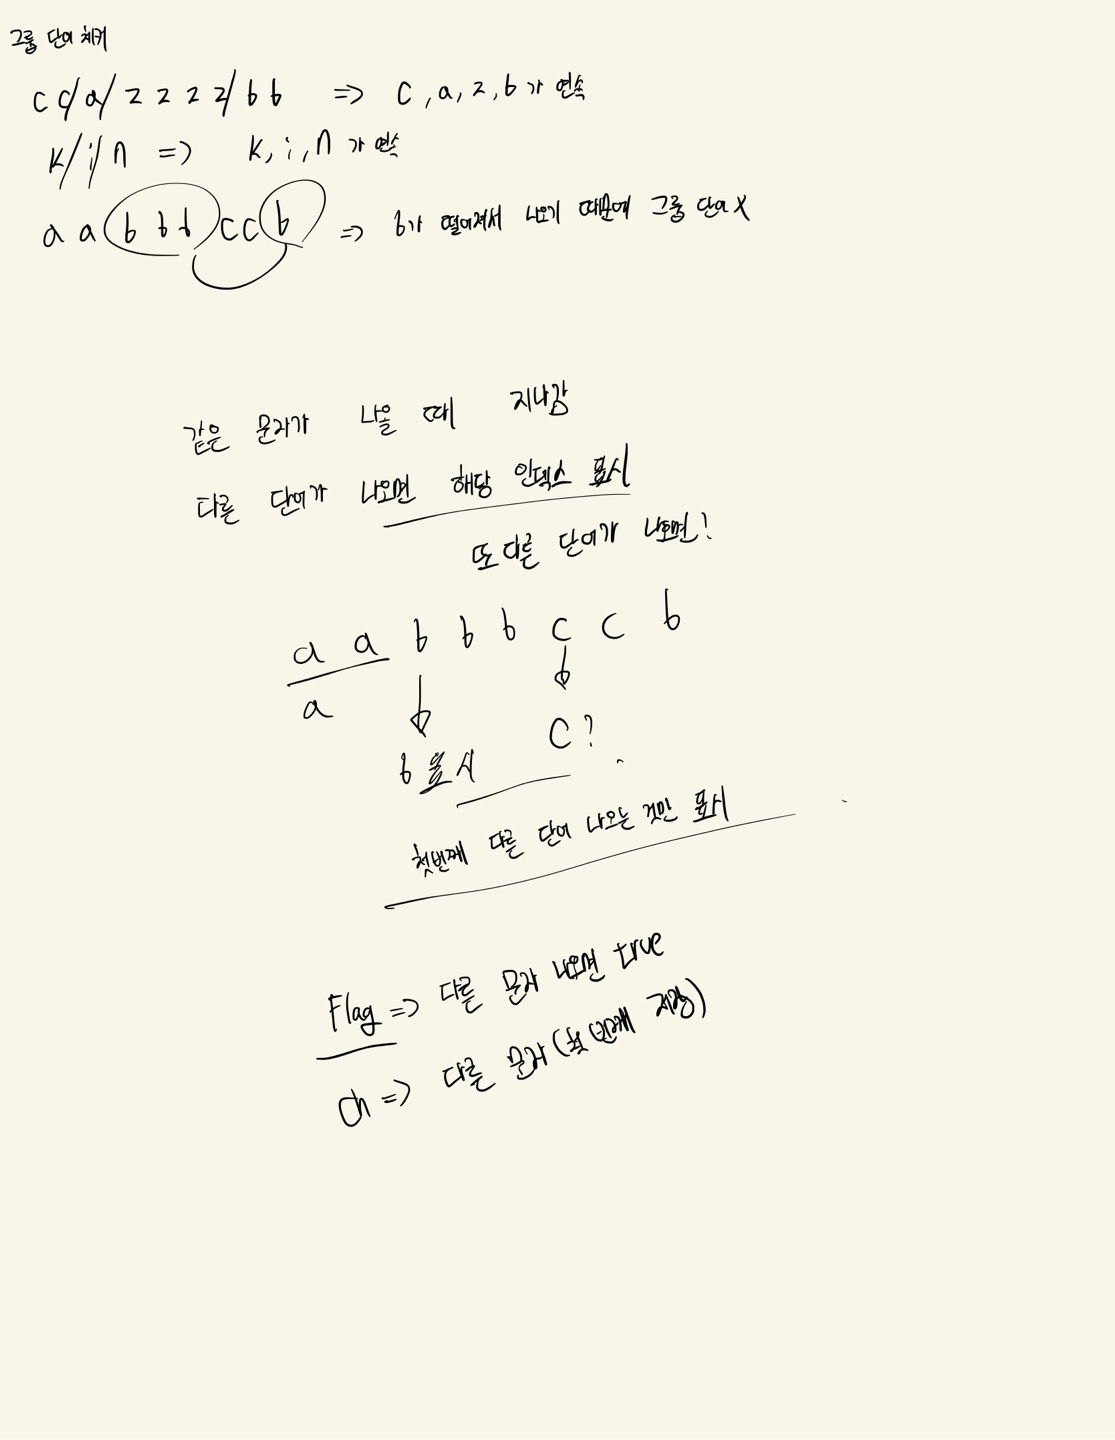 그룹 단어 체커
c c/a/z z z z/b b => c, a, z, b가 연속
k/i/n => k, i, n가 연속
a a b b b c c b => b가 떨어져서 나오기 때문에 그룹 단어 X
같은 문자가 나올 때 지나감
다른 단어가 나오면 해당 인덱스 표시
또 다른 단어가 나오면?
a a b b b c c b
a
b 표시 c?
첫번째 다른 단어 나오는 것만 표시
Flag => 다른 문자 나오면 true
ch => 다른 문자(첫 번째 저장)